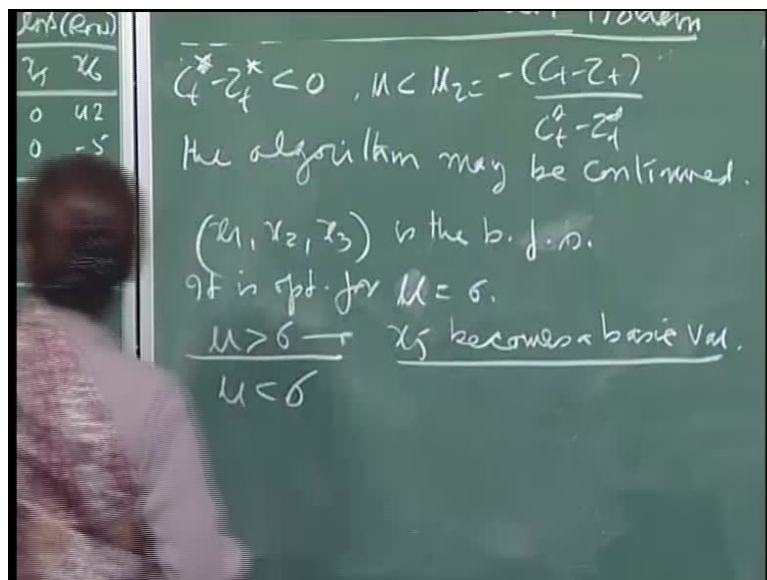 Problem
C_t^* - Z_t^* < 0 , μ < μ_2 = -(C_t - Z_t) / C_t^* - Z_t^*
the algorithm may be continued.
(x_1, x_2, x_3) is the b.f.s.
It is opt. for μ = 6.
μ > 6 — x_5 becomes a basic var.
μ < 6
x_5 x_6
0 42
0 -5